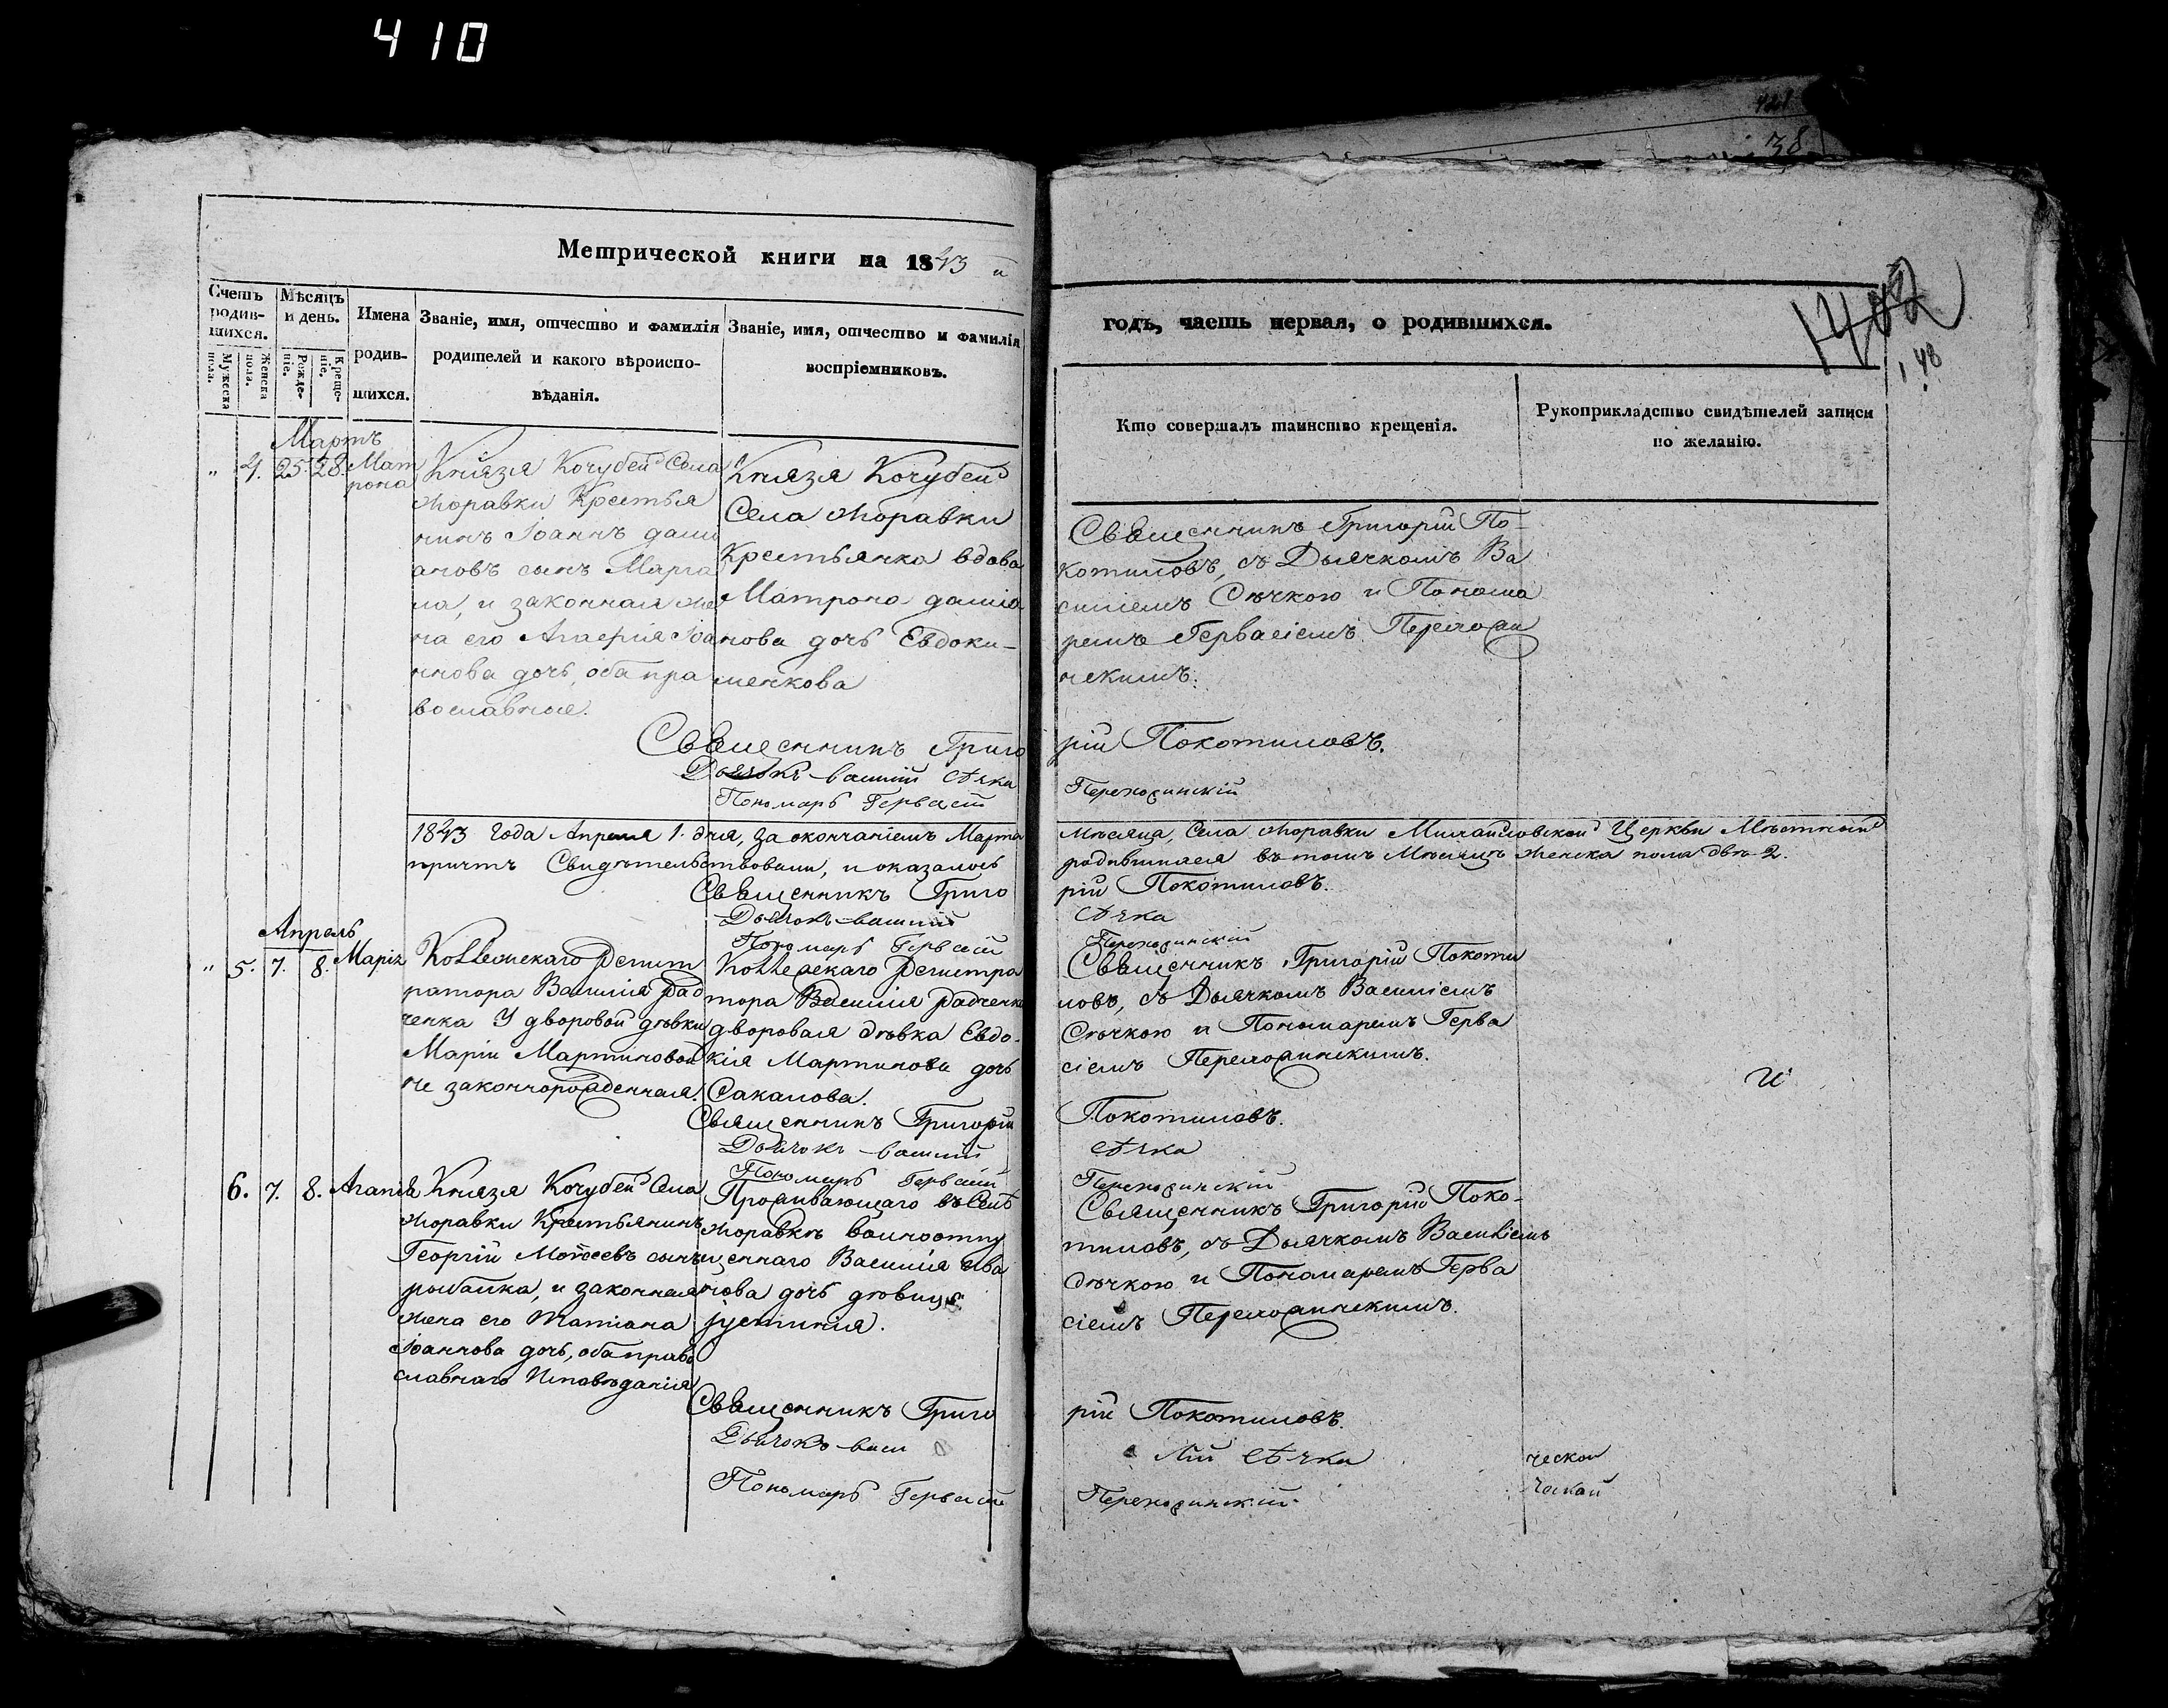 410
421
38
Метрической книги на 1843 й
годъ, часть первая, о родившихся.
1402
148
Счетъ родившихся.
Мужеска пола.
Женска пола.
Мѣсяцъ и день.
Рожденіе.
Крещеніе.
Имена родившихся.
Званіе, имя, отчество и фамилія
родителей и какого вѣроиспо-
вѣданія.
Званіе, имя, отчество и фамилія
воспріемниковъ.
Кто совершалъ таинство крещенія.
Рукоприкладство свидѣтелей записи
по желанію.
Мартъ
" 4. 25. 28. Мат
рона
Князя Кочубей Села
Жоравки Крестья
нинъ Іоаннъ Дами
ановъ сынъ
и законная же
на его Агафія Іоа
ннова дочь, оба пра
вославные.
Князя Кочубей
Села Жоравки
Крестьянка вдова
Матрона Даміа
нова дочь Евдоки-
менкова
Священникъ Григорій По-
котиловъ, съ Дьячкомъ Ва
силіемъ Сѣчкою и Понома
ремъ Гервасіемъ Пережоди
нскимъ.
Священникъ Григо рій Покотиловъ.
Дьячокъ Василій Сѣчка
Пономарь Гервасій Переходинскій
1843 Года Апреля 1. дня, за окончаніемъ Марта Мѣсяца, Села Жоравки Михайловской Церкви Мѣстный
причтъ Свидѣтельствовали, и оказалось родившихся въ томъ Мѣсяцѣ женска пола двѣ 2.
Священникъ Григо рій Покотиловъ.
Дьячокъ Василій Сѣчка
Пономарь Гервасій Переходинскій
Апрель
" 5. 7. 8. Марія
Коллежскаго Регист
ратора Василія Рад
ченка У дворовой дѣвки
Маріи Мартиновой
не законнорожденная.
Коллежскаго Регистра
тора Василія Радченка
дворовая дѣвка Евдо-
кія Мартинова дочь
Сакалова.
Священникъ Григорій Покоти
ловъ, съ Дьячкомъ Василіемъ
Сѣчкою и Пономаремъ Герва
сіемъ Переходинскимъ.
и
Священникъ Григорій Покотиловъ.
Дьячокъ Василій Сѣчка
Пономарь Гервасій Переходинскій
6. 7. 8. Агапія
Князя Кочубей Села
Жоравки Крестьянинъ
Георгій Моѵсеевъ сынъ
Рыбалка, и законная
жена его Татіана
Іоаннова дочь, оба право
славнаго Исповѣданія
Проживающаго въ Селѣ
Жоравкѣ вольноотпу
щеннаго Василія Ива
нова дочь дѣвица
Іустинія.
Священникъ Григорій Поко-
тиловъ, съ Дьячкомъ Василіемъ
Сѣчкою и Пономаремъ Герва
сіемъ Переходинскимъ.
Священникъ Григо рій Покотиловъ.
Дьячокъ Васи лій Сѣчка
Пономарь Гервасій Переходинскій
ческой
ческой